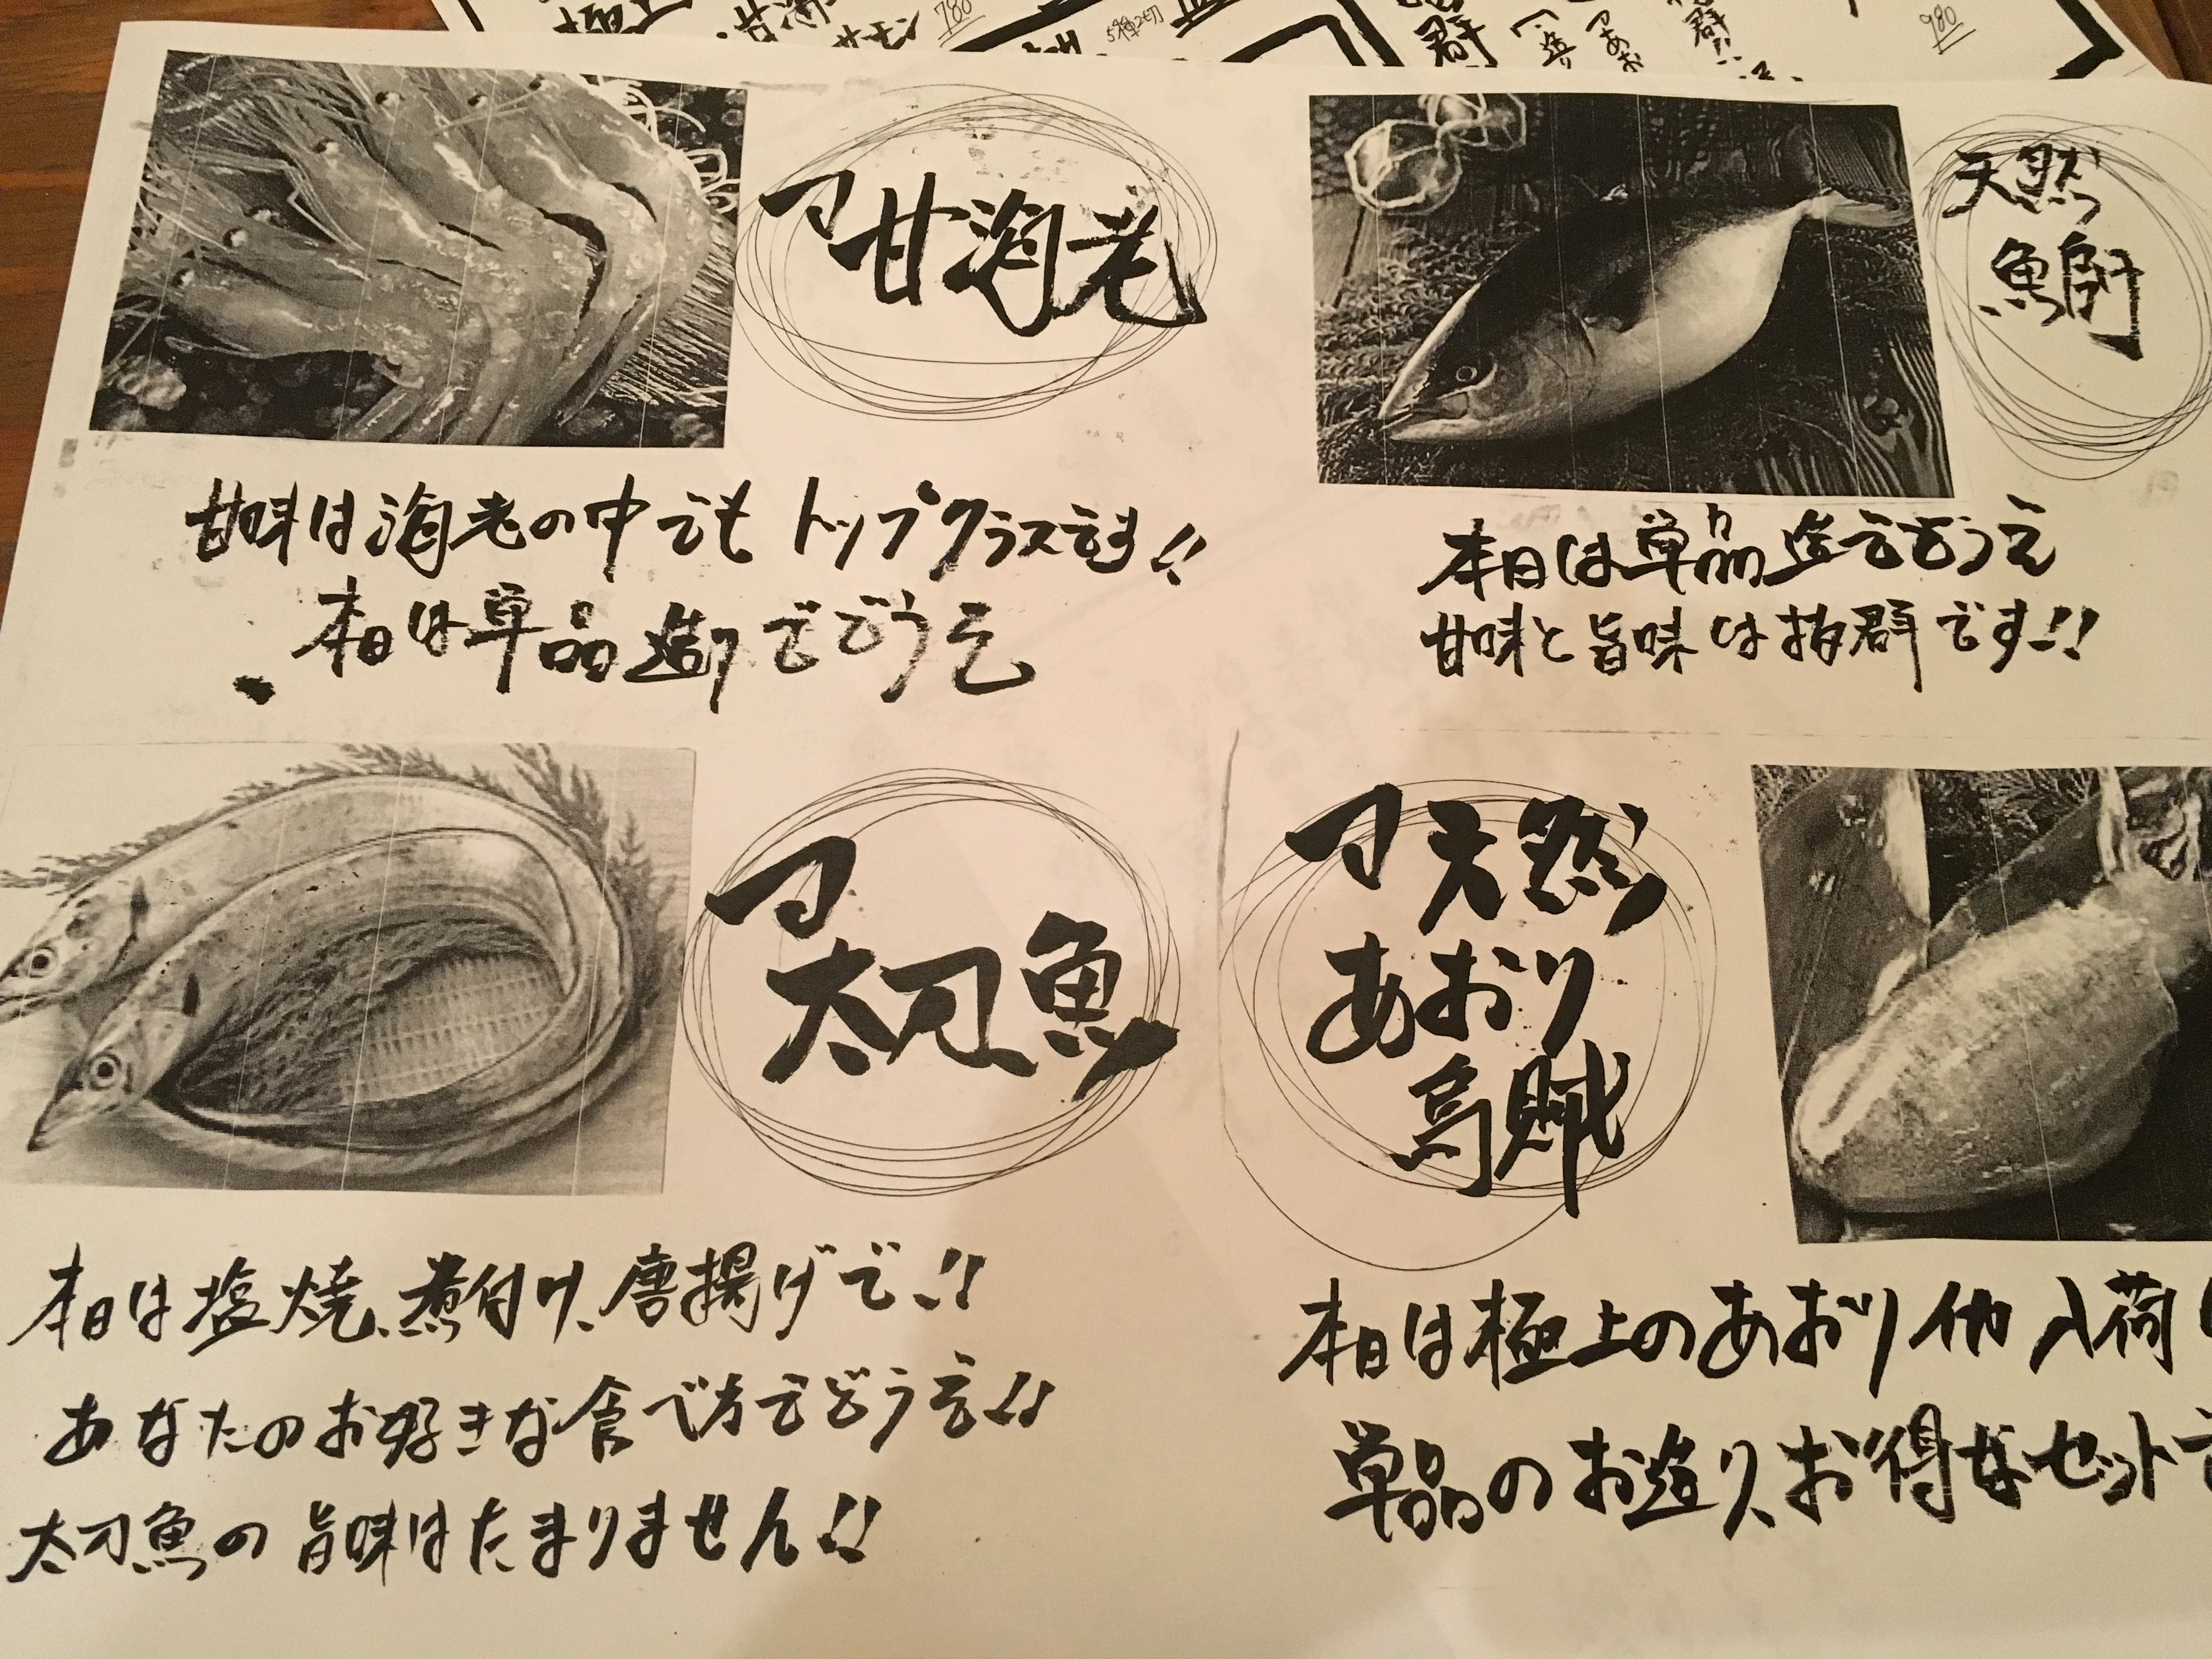 780
5種2切
980
甘海老
甘味は海老の中でもトップクラスです!!
本日は単品造りでどうぞ
天然
鰤
本日は単品造りでどうぞ
甘味と旨味は抜群です!!
太刀魚
本日は塩焼、煮付け、唐揚げで!!
あなたのお好きな食べ方でどうぞ!!
太刀魚の旨味はたまりません!!
天然
あおり
烏賊
本日は極上のあおりイカ入荷
単品のお造り、お得なセット